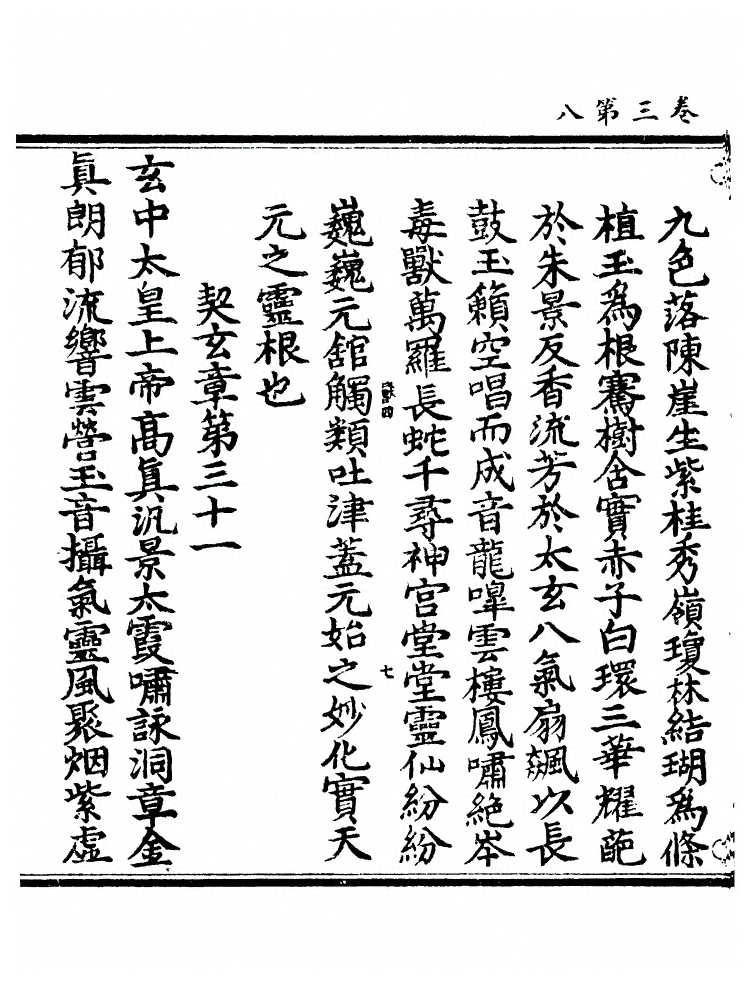 卷三第八
九色落陳崖生紫桂秀嶺瓊林結瑚爲條
植玉爲根騫樹含實赤子白環三華耀葩
於朱景反香流芳於太玄八氣扇飊以長
鼓玉籟空唱而成音龍嘷雲樓鳳嘯絶岑
毒獸萬羅長蛇千尋神宮堂堂靈仙紛紛
七
巍巍元舘觸類吐津蓋元始之妙化實天
元之靈根也
契玄章第三十一
玄中太皇上帝高眞汎景太霞嘯詠洞章金
眞朗郁流響雲營玉音攝氣靈風聚烟紫虛